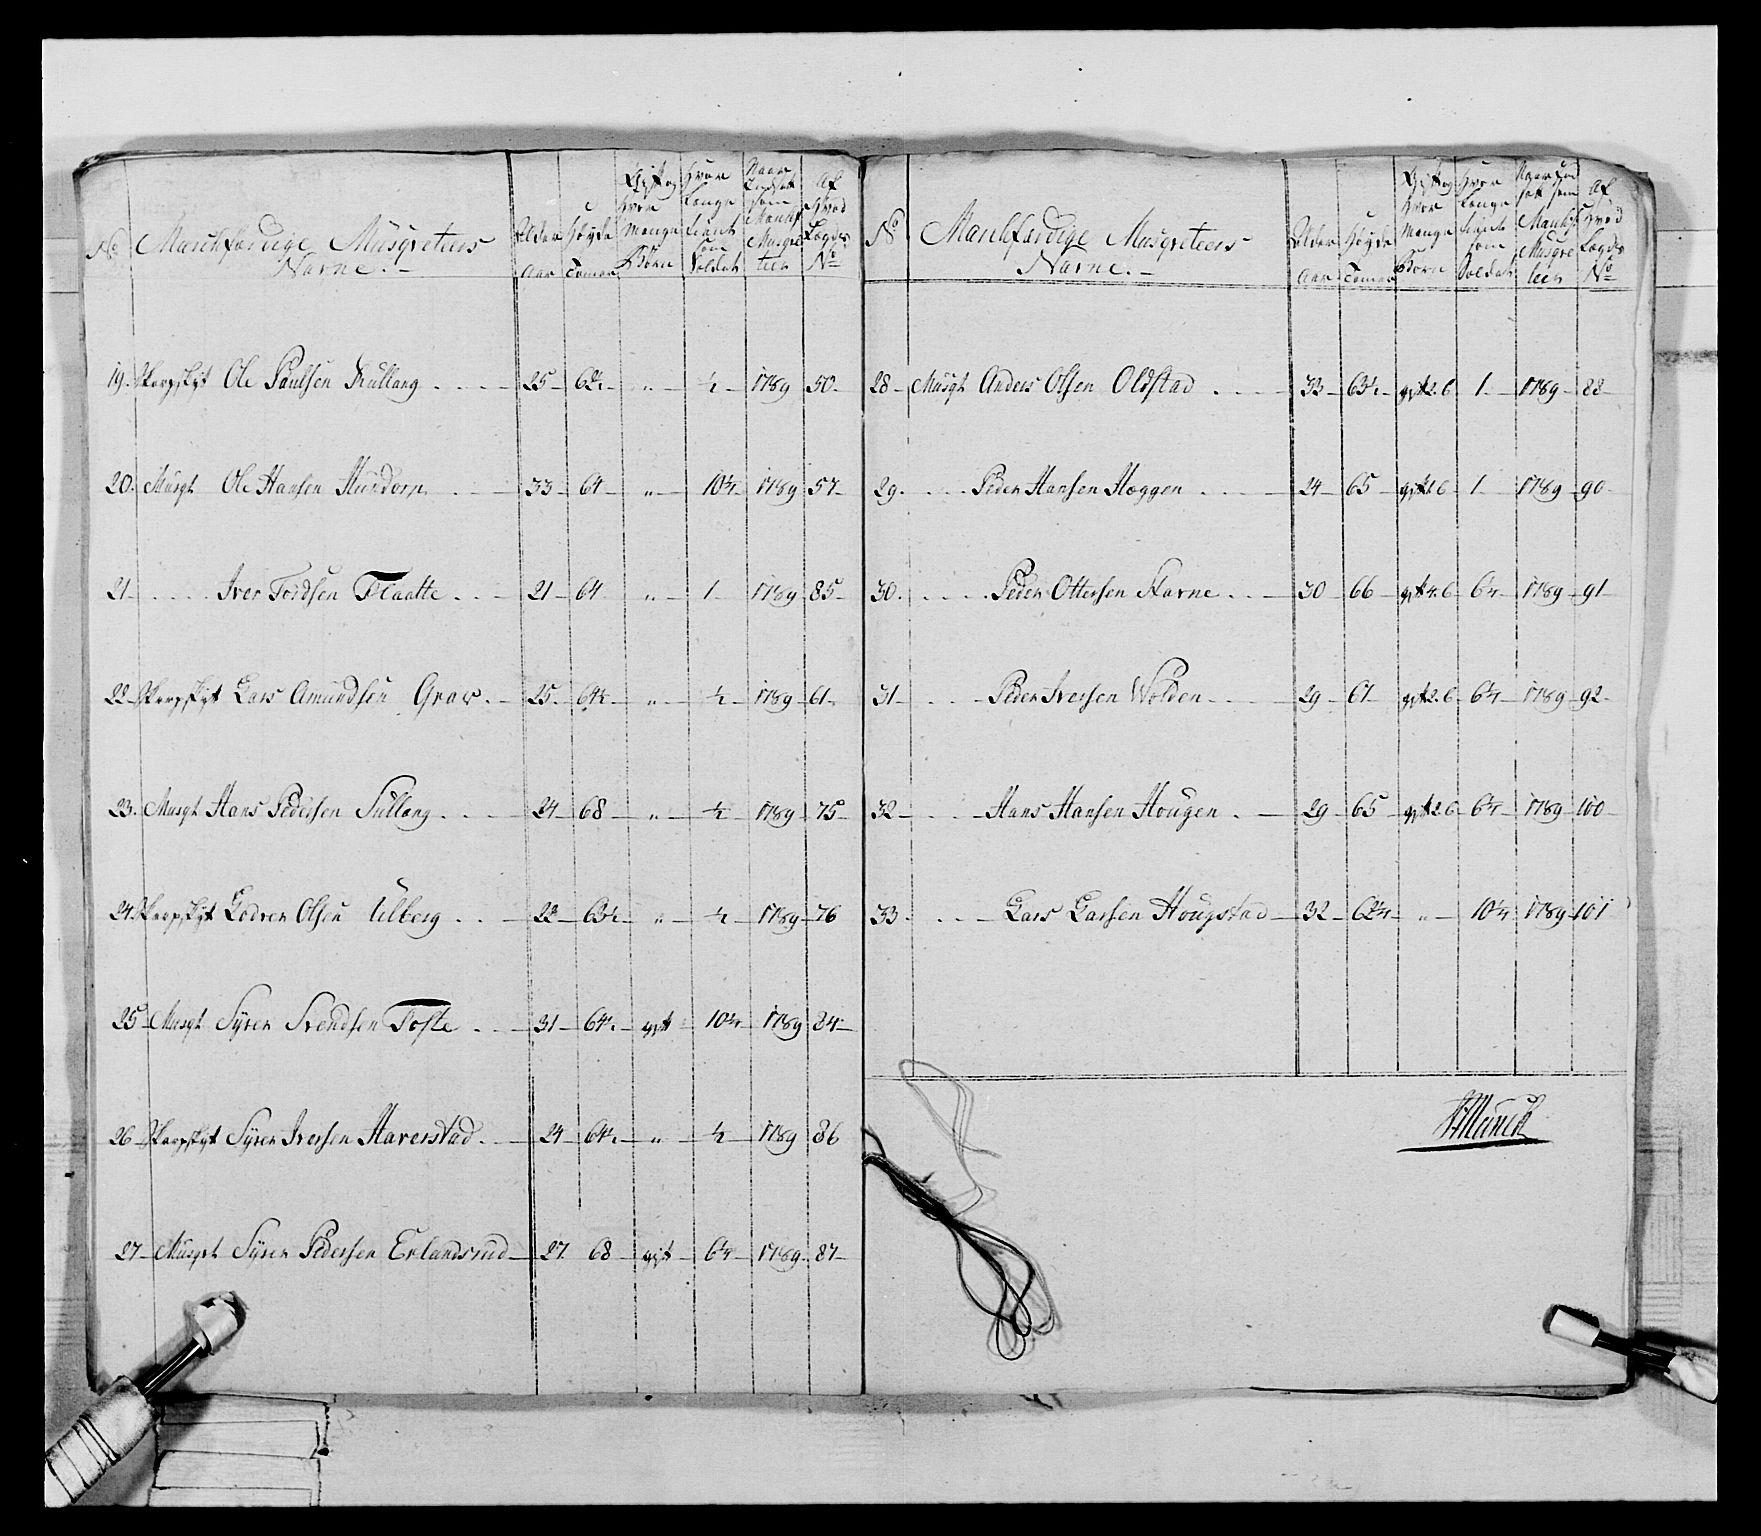 No Marchfærdige Musqveteers Navne. Alder Aar Høyde Tomer Gift og hvor Mange Børn Hvor Længe tient som Soldat Naar Indsat som Marchf. Musqveteer Af Hvad Lægds No
19. Skarpskyt Ole Paulsen Kullang 25 62½ „ ½ 1789 50
20. Musqt Ole Hansen Hundorp 33 64 „ 10¼ 1789 57
21 Iver Tordsen Flaatte 21 64 „ 1 1789 85
22 Skarpskyt Lars Amundsen Grav 25 64½ „ ½ 1789 61
23. Musqt Hans Pedersen Sullang 24 68 „ ½ 1789 75
24. Skarpskyt Lodver Olsen Ulberg 22 63½ „ ½ 1789 76
25 Musqt Syver Svendsen Tofte 31 64½ gift 10¼ 1789 84
26 Skarpskyt Syver Iversen Haverstad 24 64½ „ ½ 1789 86
27 Musqvt Syver Pedersen Erlandsrud 27 68 gift 6¼ 1789 87
No Marchfærdige Musqveteers Navne. Alder Aar Høyde Tomer Gift og Hvor Mange Børn Hvor Længe tient som Soldat Naar Indsat som Marchf. Musqveteer Af Hvad Lægds No
28 Musqt Anders Olsen Oldstad 33 63½ gift 2 b 1 1789 88
29. Peder Hansen Hæggen 24 65 gift 1 b 1 1789 90
30. Peder Ottersen Harne 30 66 gift 4 b 6¼ 1789 91
31 Peder Iversen Wolden 29 67 gift 2 b 6¼ 1789 92
32 Hans Hansen Hougen 29 65 gift 2 b 6¼ 1789 100
33. Lars Larsen Hougstad 32 62¼ „ 10¼ 1789 101
Munch